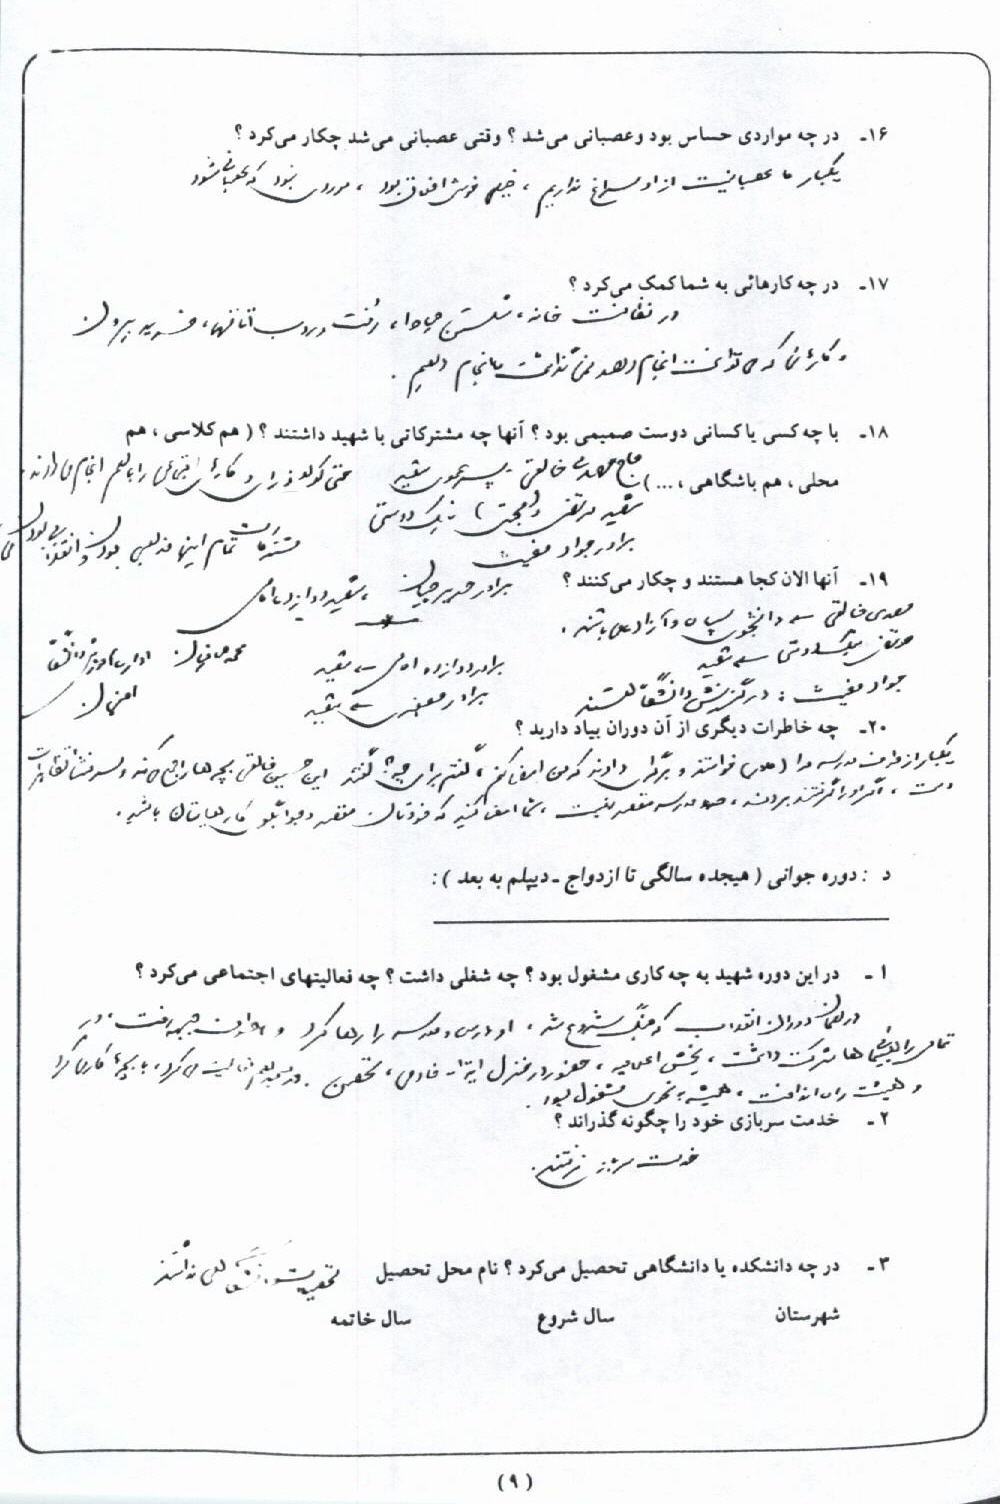 ۱۶ـ در چه مواردی حساس بود و عصبانی می‌شد ؟ وقتی عصبانی می‌شد چکار می‌کرد ؟
یکبار ما عصبانیت از او سراغ نداریم ، خیلی خوش اخلاق بود ، موردی نبود که عصبانی شود
۱۷ـ در چه کارهائی به شما کمک می‌کرد ؟
در نظافت خانه ، شستن حیاط ، رفت و روب اتاقها ، خرید بیرون
و کارهائی که می‌توانست انجام دهد نمی‌گذاشت ما انجام دهیم .
۱۸ـ با چه کسی یا کسانی دوست صمیمی بود ؟ آنها چه مشترکاتی با شهید داشتند ؟ ( هم کلاسی ، هم
محلی ، هم باشگاهی ، ... ) حاج مهدی خالقی - پسر عموی شهید و کارهای اجتماعی را با هم انجام می‌دادند .
شهید مرتضی نیک دوستی
برادر جواد مغیث مشترکات تمام اینها مذهبی بودن و انقلابی بودن
۱۹ـ آنها الان کجا هستند و چکار می‌کنند ؟ برادر
مهدی خالقی دانشجوی سپاه و آزاد می‌باشد .
مرتضی نیکدوستی شهید برادر دوازده امامی شهید
جواد مغیث : در گزینش دانشگاه هستند برادر شهید
۲۰ـ چه خاطرات دیگری از آن دوران بیاد دارید ؟
یکبار از طرف مدرسه مرا خواستند و برگه‌ای دادند که من امضاء کنم ، گفتم برای چه ؟ گفتند این حسین خالقی بچه‌ها را جمع می‌کند و
است ، اگر او را گرفتند بردند ، مدرسه مقصر نیست ، شما امضا کنید که خودتان مقصر و جوابگو کارهایتان باشید .
د : دوره جوانی ( هیجده سالگی تا ازدواج ـ دیپلم به بعد ) :
۱ـ در این دوره شهید به چه کاری مشغول بود ؟ چه شغلی داشت ؟ چه فعالیتهای اجتماعی می‌کرد ؟
در همان دوران انقلاب که جنگ شروع شد ، او درس و مدرسه را رها کرد و جبهه رفت ، در
تمامی راهپیمائی‌ها شرکت داشت ، پخش اعلامیه ، حضور در منزل ، تحصن . در فعالیت می‌کرد ، با بچه‌ها کار می‌کرد
و هیئت راه انداخت ، همیشه مشغول بود .
۲ـ خدمت سربازی خود را چگونه گذراند ؟
خدمت سربازی نرفتند .
۳ـ در چه دانشکده یا دانشگاهی تحصیل می‌کرد ؟ نام محل تحصیل تحصیلات دانشگاهی نداشتند
شهرستان سال شروع سال خاتمه
( ۹ )